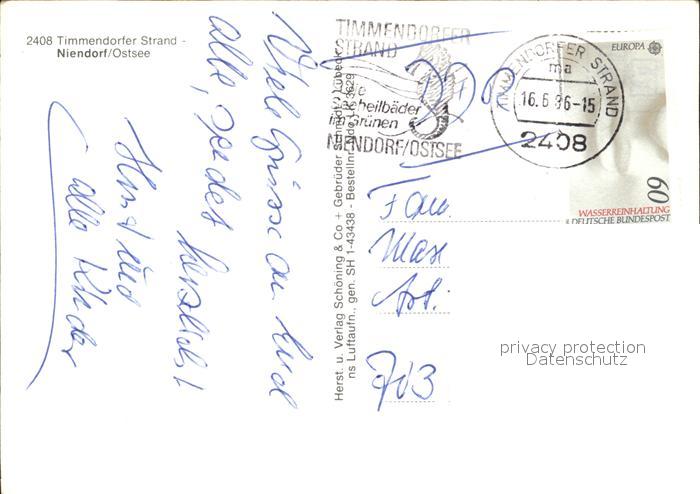 2408 Timmendorfer Strand -
Niendorf/Ostsee
Viele Grüsse an Euch
alle, sendet herzlichst
Horst und
alle Kinder
Herst. u. Verlag Schöning & Co + Gebrüder Schmidt, Lübeck
ns Luftaufn., gen. SH 1-43438 - Bestellnr.
TIMMENDORFER
STRAND
heilbäder
im Grünen
NIENDORF/OSTSEE
TIMMENDORFER STRAND
ma
16.6.86-15
2408
EUROPA
60
WASSERREINHALTUNG
DEUTSCHE BUNDESPOST
Fam.
Max
703
privacy protection
Datenschutz